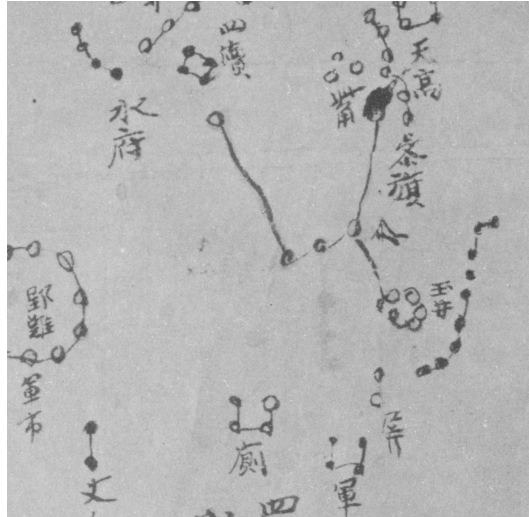 四瀆
天高
觜
水府
参旗
玉井
野雞
軍市
屏
廁
軍
丈
四